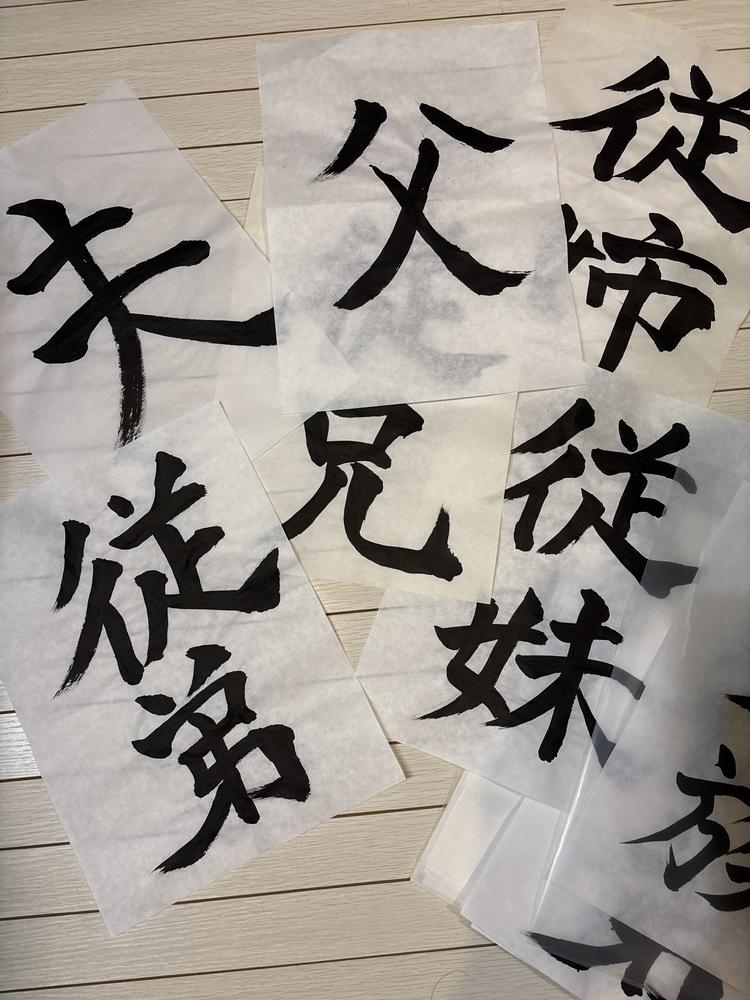 父
従姉
夫
兄
従妹
従弟